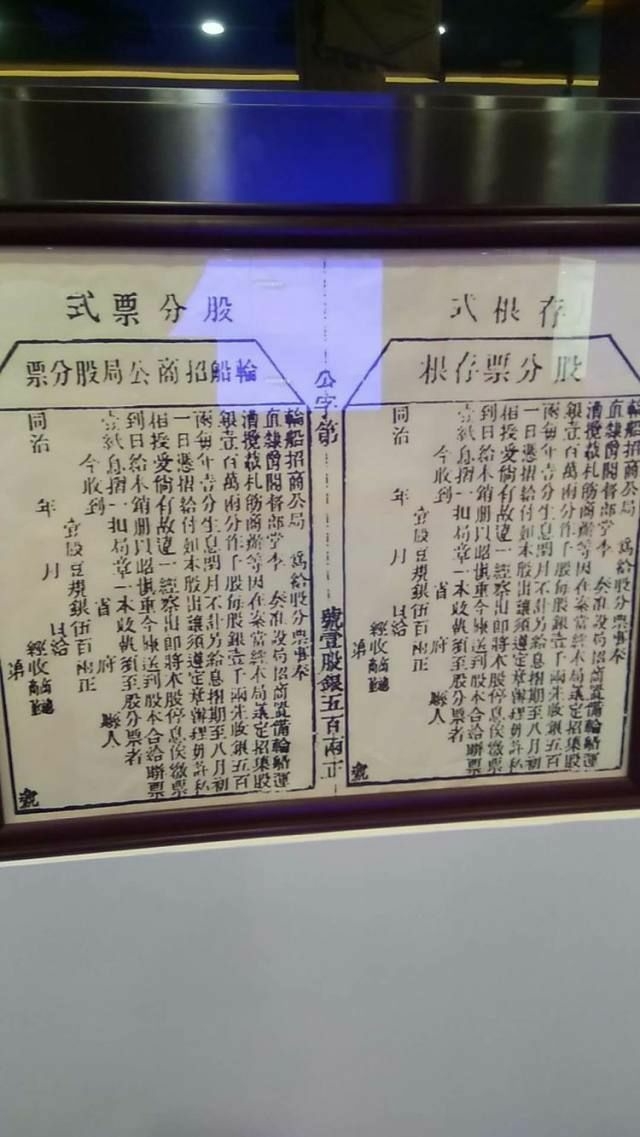 存根式
股分票存根
輪船招商公局 為給股分票事奉
直隸爵閣督部堂李 奏准設局招商置備輪船運
漕攬載札飭商辦等因在案當經本局議定招集股
銀壹百萬兩分作千股每股銀壹千兩先收銀五百
兩每年壹分生息閏月不計另給息摺期至八月初
一日憑摺給付如本股出讓須遵定章辦理毋許私
相授受倘有故違一經察出即將本股停息俟繳票
到日給本銷册以昭慎重今 送到股本合給聯票
壹紙息摺一扣局章一本收執須至股分票者
今收到 省 府 縣人
壹股豆規銀伍百兩正
同治 年 月 日給 經收商
第 號
公字第 號壹股銀五百兩正
股分票式
輪船招商公局股分票
輪船招商公局 為給股分票事奉
直隸爵閣督部堂李 奏准設局招商置備輪船運
漕攬載札飭商辦等因在案當經本局議定招集股
銀壹百萬兩分作千股每股銀壹千兩先收銀五百
兩每年壹分生息閏月不計另給息摺期至八月初
一日憑摺給付如本股出讓須遵定章辦理毋許私
相授受倘有故違一經察出即將本股停息俟繳票
到日給本銷册以昭慎重今 送到股本合給聯票
壹紙息摺一扣局章一本收執須至股分票者
今收到 省 府 縣人
壹股豆規銀伍百兩正
同治 年 月 日給 經收商
第 號